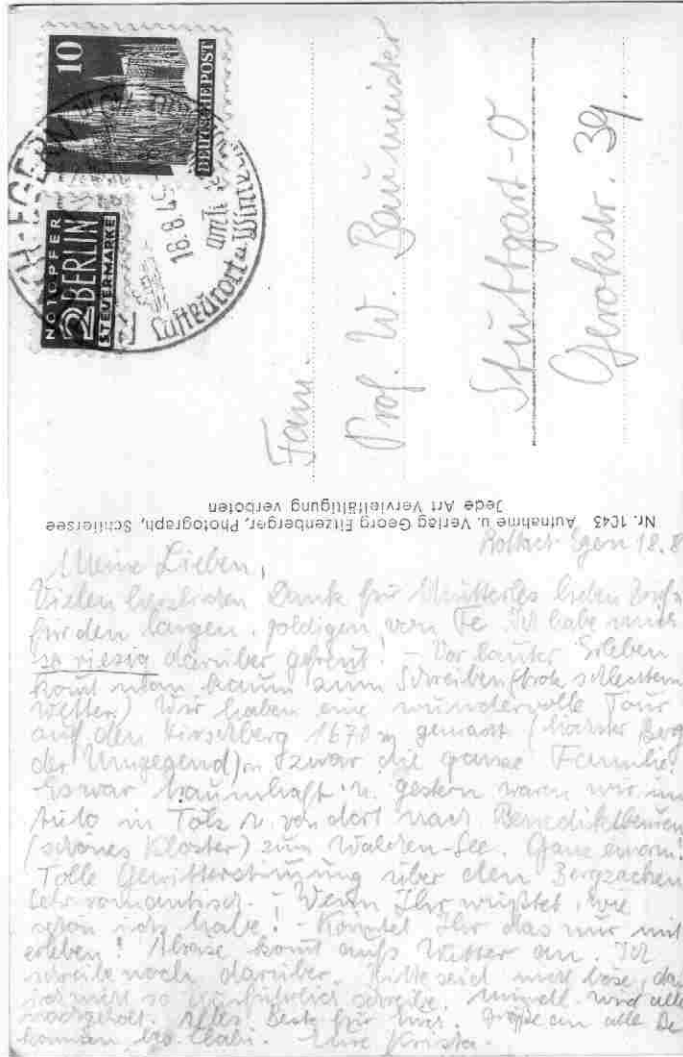 10
DEUTSCHE POST
NOTOPFER
2 BERLIN
STEUERMARKE
CH-EGERN
18.8.4
Luftkurort u. Winter
Fam.
Prof. W. Baumeister
Stuttgart-O
Gerokstr. 39
Nr. 1043 Aufnahme u. Verlag Georg Eitzenberger, Photograph, Schliersee
Jede Art Vervielfältigung verboten
Rottach Egern 18.8
Meine Lieben,
Vielen herzlichen Dank für Mutterles lieben
für den langen, goldigen von Fe. Ich habe mich
so riesig darüber gefreut! – Vor lauter Erleben
komt man kaum zum Schreiben (trotz schlechtem
Wetter) Wir haben eine wundervolle Tour
auf den Hirschberg 1670 m gemacht (höchster Berg
der Umgegend) u. zwar die ganze Familie.
Es war traumhaft u. gestern waren wir im
Auto in Tölz u. von dort nach Benediktbeuren
(schönes Kloster) zum Walchen-See. Ganz enorm!
Tolle Gewitterstimung über den Bergzacken
sehr romantisch. – Wenn Ihr wüsstet, wie
schön ichs habe! – Könntet Ihr das nur mit
erleben! Abreise komt aufs Wetter an. Ich
schreibe noch darüber. Bitte seid nicht böse, dass
ich nicht so ausführlich schreibe, wird alles
nachgeholt. Alles Beste für Euch. Grüße an alle Be
kannten Eure Krista.